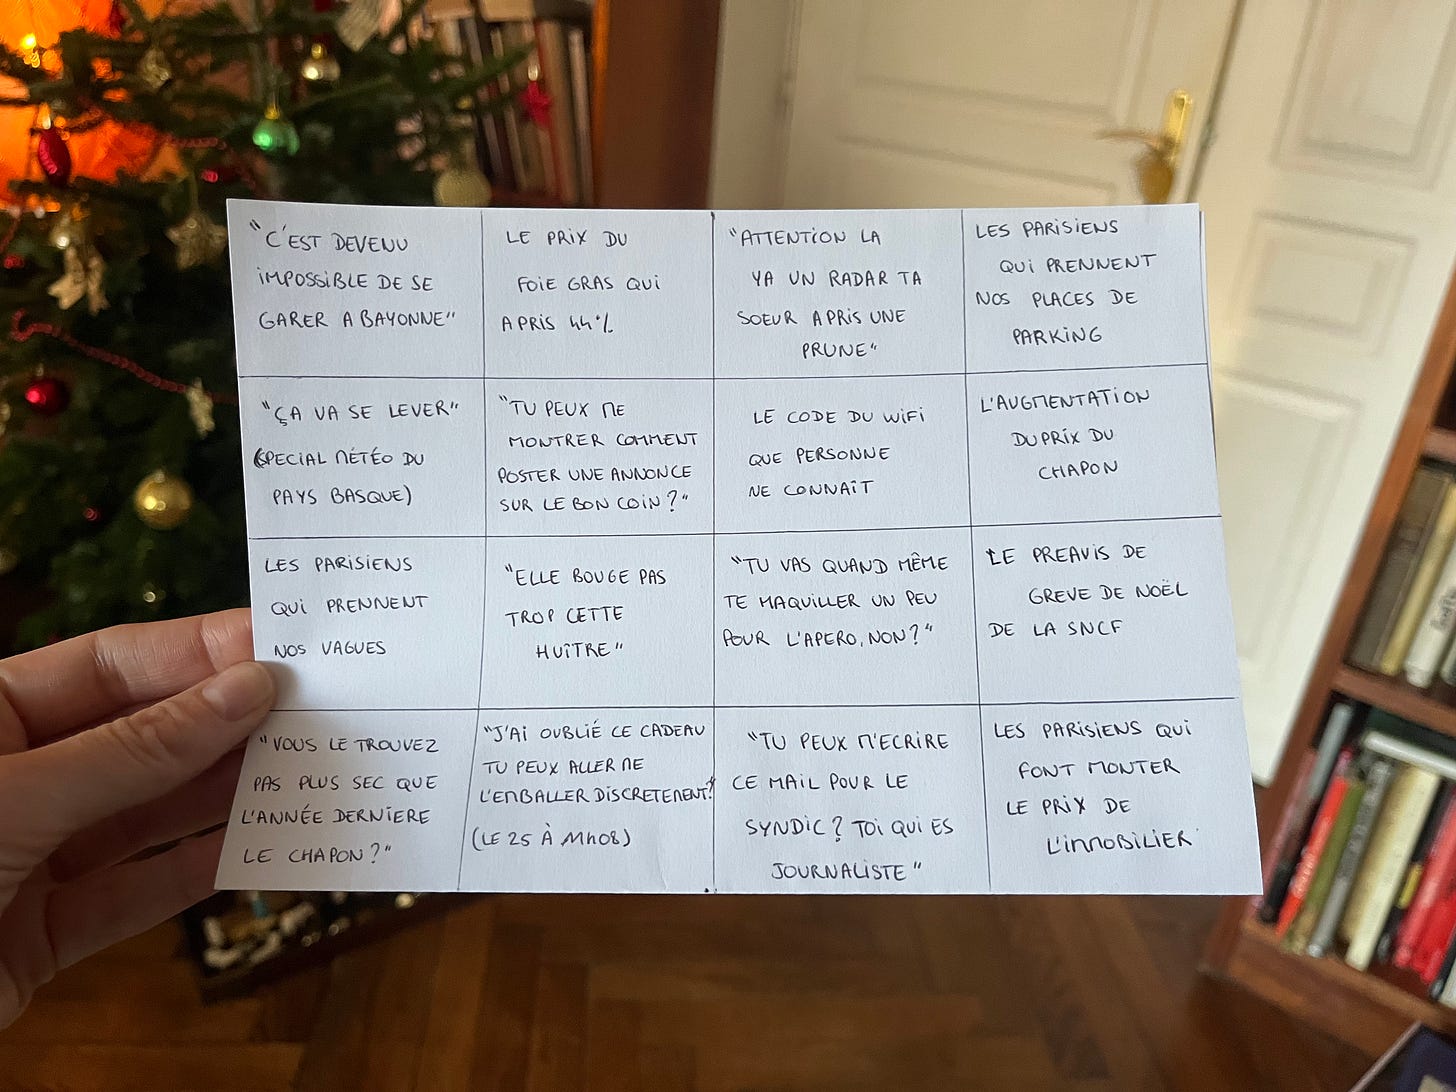 "C'EST DEVENU
IMPOSSIBLE DE SE
GARER A BAYONNE"
LE PRIX DU
FOIE GRAS QUI
A PRIS 44%
"ATTENTION LA
YA UN RADAR TA
SOEUR A PRIS UNE
PRUNE"
LES PARISIENS
QUI PRENNENT
NOS PLACES DE
PARKING
"ÇA VA SE LEVER"
(SPECIAL MÉTÉO DU
PAYS BASQUE)
"TU PEUX ME
MONTRER COMMENT
POSTER UNE ANNONCE
SUR LE BON COIN?"
LE CODE DU WIFI
QUE PERSONNE
NE CONNAÎT
L'AUGMENTATION
DU PRIX DU
CHAPON
LES PARISIENS
QUI PRENNENT
NOS VAGUES
"ELLE BOUGE PAS
TROP CETTE
HUÎTRE"
"TU VAS QUAND MÊME
TE MAQUILLER UN PEU
POUR L'APERO, NON?"
LE PREAVIS DE
GREVE DE NOËL
DE LA SNCF
"VOUS LE TROUVEZ
PAS PLUS SEC QUE
L'ANNÉE DERNIERE
LE CHAPON?"
"J'AI OUBLIÉ CE CADEAU
TU PEUX ALLER ME
L'EMBALLER DISCRETEMENT?"
(LE 25 À 11h08)
"TU PEUX M'ECRIRE
CE MAIL POUR LE
SYNDIC? TOI QUI ES
JOURNALISTE"
LES PARISIENS QUI
FONT MONTER
LE PRIX DE
L'IMMOBILIER